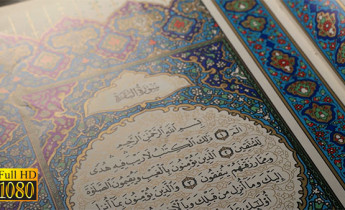 سورة البقرة
بسم الله الرحمن الرحيم
الم ذلك الكتب لا ريب فيه هدى
للمتقين الذين يؤمنون بالغيب ويقيمون الصلوة
ومما رزقنهم ينفقون والذين يؤمنون بما أنزل
إليك وما أنزل من قبلك
Full HD
1080